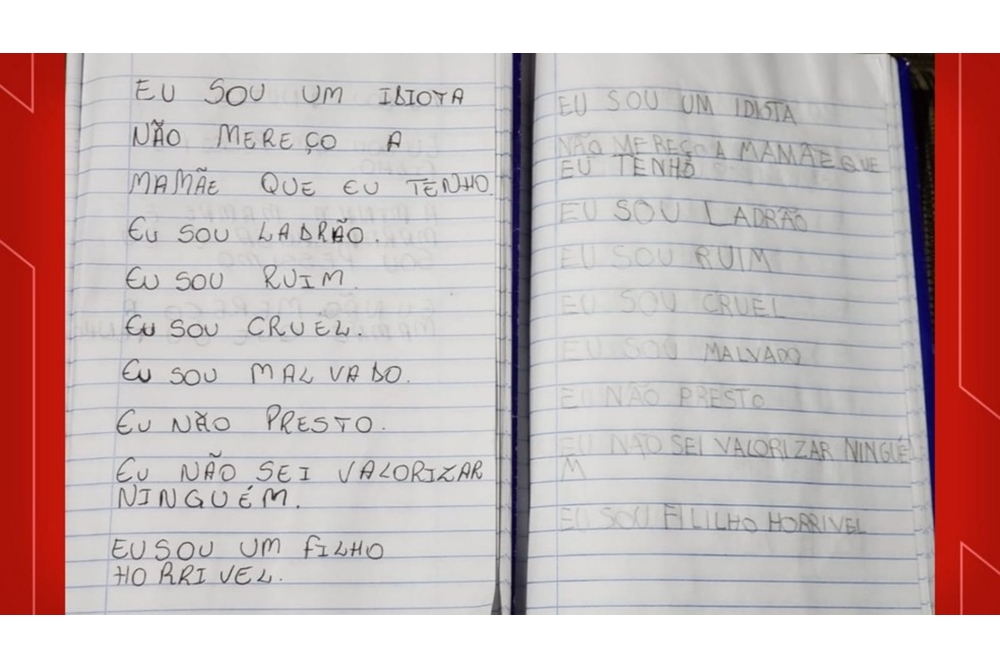 EU SOU UM IDIOTA
NÃO MEREÇO A
MAMÃE QUE EU TENHO.
EU SOU LADRÃO.
EU SOU RUIM.
EU SOU CRUEL.
EU SOU MALVADO.
EU NÃO PRESTO.
EU NÃO SEI VALORIZAR
NINGUÉM.
EU SOU UM FILHO
HORRIVEL.
EU SOU UM IDIOTA
NÃO MEREÇO A MAMÃE QUE
EU TENHO
EU SOU LADRÃO
EU SOU RUIM
EU SOU CRUEL
EU SOU MALVADO
EU NÃO PRESTO
EU NÃO SEI VALORIZAR NINGUÉ
M
EU SOU FILILHO HORRIVEL